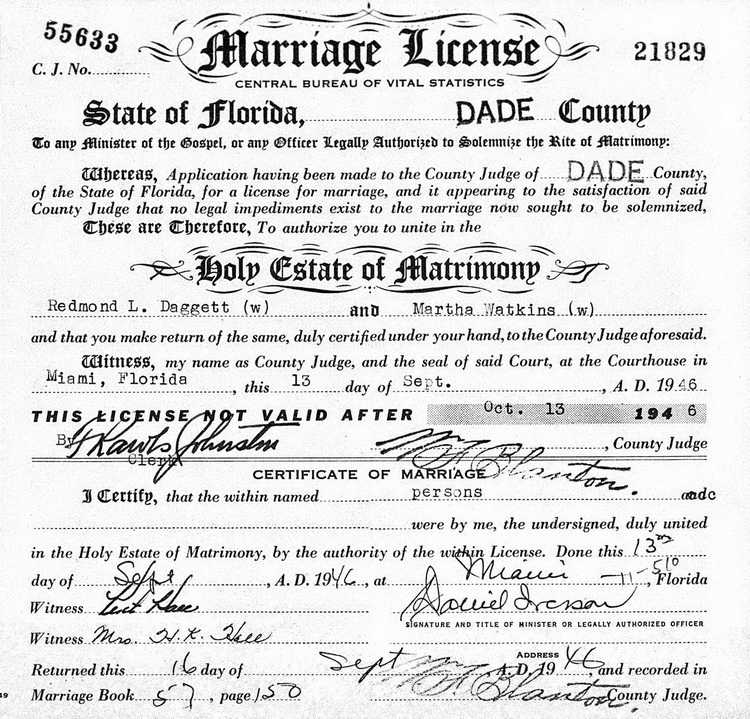 55633
Marriage License
21829
C. J. No.
CENTRAL BUREAU OF VITAL STATISTICS
State of Florida, DADE County
To any Minister of the Gospel, or any Officer Legally Authorized to Solemnize the Rite of Matrimony:
Whereas, Application having been made to the County Judge of DADE County,
of the State of Florida, for a license for marriage, and it appearing to the satisfaction of said
County Judge that no legal impediments exist to the marriage now sought to be solemnized,
These are Therefore, To authorize you to unite in the
Holy Estate of Matrimony
Redmond L. Daggett (w) and Martha Watkins (w)
and that you make return of the same, duly certified under your hand, to the County Judge aforesaid.
Witness, my name as County Judge, and the seal of said Court, at the Courthouse in
Miami, Florida, this 13 day of Sept., A. D. 1946
THIS LICENSE NOT VALID AFTER Oct. 13 1946
By Johnston W. F. Blanton., County Judge
Clerk
CERTIFICATE OF MARRIAGE
I Certify, that the within named persons and
were by me, the undersigned, duly united
in the Holy Estate of Matrimony, by the authority of the within License. Done this 13
day of Sept, A. D. 1946, at Miami, Florida
Witness Hall
Daniel
SIGNATURE AND TITLE OF MINISTER OR LEGALLY AUTHORIZED OFFICER
Witness Mrs. H. K. Hall
ADDRESS
Returned this 16 day of Sept A. D. 1946, and recorded in
Marriage Book 57, page 150 W. F. Blanton. County Judge.